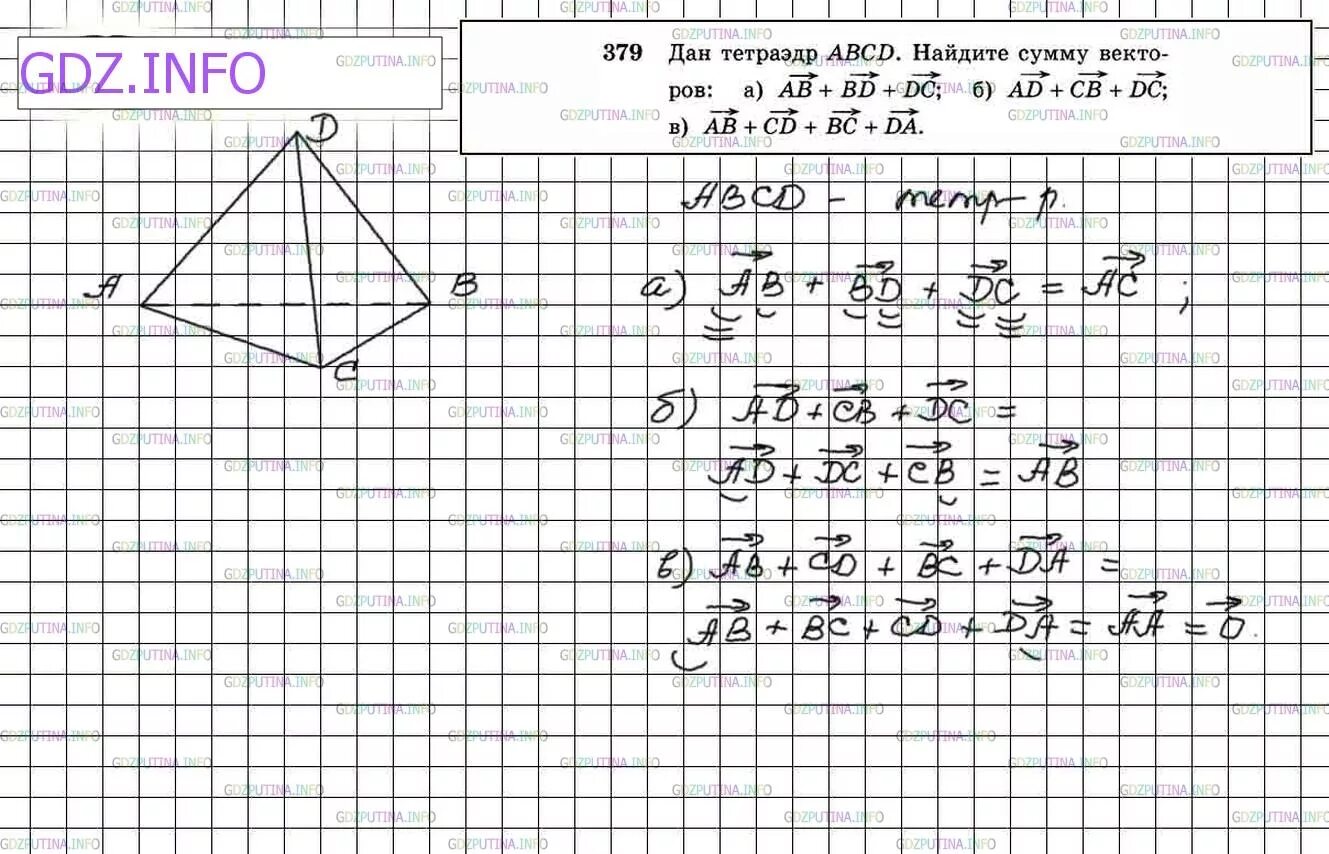 GDZ.INFO
379 Дан тетраэдр ABCD. Найдите сумму векто-
ров: а) AB + BD + DC; б) AD + CB + DC;
в) AB + CD + BC + DA.
D
A
B
C
ABCD – тетр-р.
а) AB + BD + DC = AC ;
б) AD + CB + DC =
AD + DC + CB = AB
в) AB + CD + BC + DA =
AB + BC + CD + DA = AA = 0.
GDZPUTINA.INFO